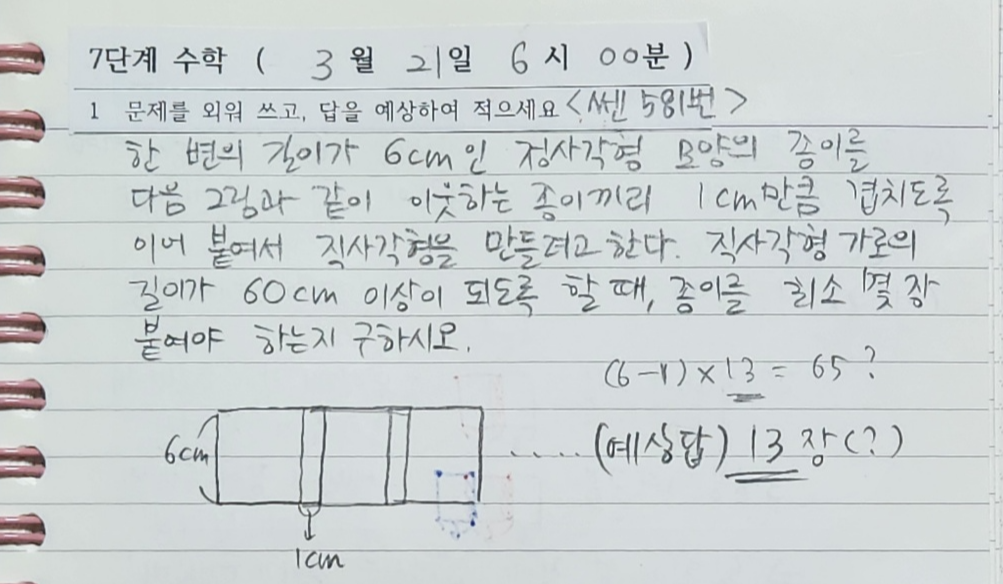 7단계 수학 ( 3 월 21일 6 시 00분 )
1 문제를 외워 쓰고, 답을 예상하여 적으세요 <쎈 581번>
한 변의 길이가 6cm인 정사각형 모양의 종이를
다음 그림과 같이 이웃하는 종이끼리 1cm만큼 겹치도록
이어 붙여서 직사각형을 만들려고한다. 직사각형 가로의
길이가 60cm 이상이 되도록 할 때, 종이를 최소 몇 장
붙여야 하는지 구하시오.
(6-1)×13 = 65?
6cm
.....(예상답) 13장(?)
1cm